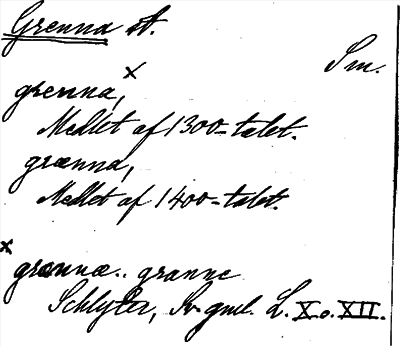 Grenna st.
Sm.
grenna,x
Medlet af 1300-talet.
grænna,
Medlet af 1400-talet.
x grannæ.. granne
Schlyter, Sv. gml. L. X o. XII.